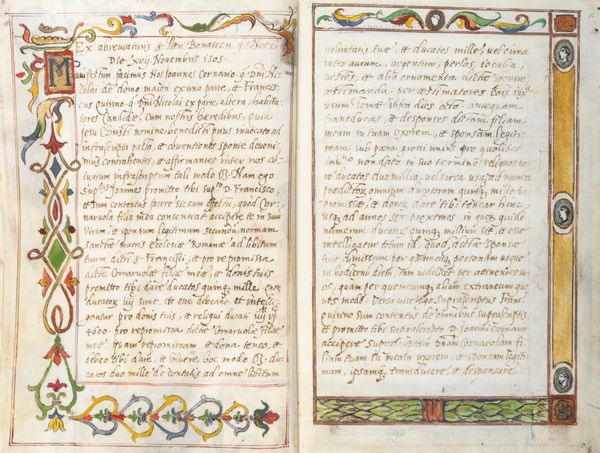 Ex abreviaturis Petri Bonauen. q.
Die xvij. Novembris 1505.
Manifestum facimus Nos Joannes Cornario q. Dni Ni-
colai de domo maiori ex una parte, et Francis-
cus Quirino q. Dni Nicolai ex parte altera, habita-
tores Candidae. Cum nostris haeredibus, quia
Iesu Christi nomine benedicti prius invocato ad
infrascripta pacta, et conventiones sponte deveni-
mus contrahentes, et affirmantes inter nos
infrascriptum tali modo Nam ego
Joannes promitto tibi Francisco,
et tum contentus facere sic cum effectu, quod Cor-
narvola filia mea consentiat accipere te in suum
virum, et sponsum legitimum secundum normam
sanctae matris ecclesiae Romanae ad libitum
tuum dicti Francisci, et pro repromissa
dictae Cornarvolae filiae meae, et donis tuis
promitto tibi dare ducatos quinque mille quor
ducatorum sint, et esse debeant et intelli-
gantur pro donis tuis, et reliqui ducati
4600. pro repromissa dictae Cornarvolae filiae
meae quam repromissam et dona teneor, et
debeo tibi dare, et solvere hoc modo du-
catos duo mille de contatis ad omne libitum
voluntatis tuae, et ducatos mille, vel circa
inter aurum, argentum, perlas, iocalia,
vestes, et alia ornamenta dictae
extimanda per extimatores
usum dies octo antequam
transducas, et desponses dictam filiam
meam in tuam uxorem, et sponsam legiti-
mam sub paena grossi unius pro quolibet
non dato in suo termino reliquos ve-
ro ducatos duo millia, vel circa usque ad numerum
praedictorum omnium ducatorum quinque mille
promissae, et donis dare tibi tenear hinc
usque ad annos sex proximos, in quos quidem
numerum ducatorum quinque millium sit, et esse
intelligatur totum id quod dictae sponsae
fuit dimissum per quamcunque personam usque
in hodiernum diem, tam
per quemcunque alium extraneum quo-
vis modo. Versa vice ego suprascriptus Franc.
Quirino sum contentus de omnibus suprascriptis,
et promitto tibi suprascripto D. Joanni Cornario
accipere suprascriptam Dnam Cornarvolam fi-
liam tuam in meam uxorem, et sponsam legiti-
mam, ipsamque transducere, et desponsare